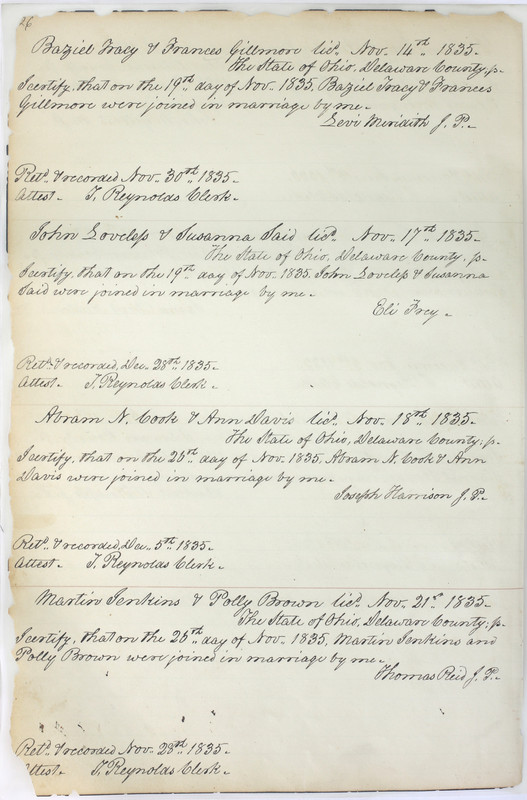 26
Baziel Tracy & Frances Gillmore licd. Nov. 14th 1835.
The State of Ohio, Delaware County, ss.
I certify, that on the 19th day of Nov. 1835, Baziel Tracy & Frances
Gillmore were joined in marriage by me.
Levi Meridith J. P.
Retd. & recorded Nov. 30th 1835.
Attest. T. Reynolds Clerk.
John Loveless & Susanna Said licd. Nov. 17th 1835.
The State of Ohio, Delaware County, ss.
I certify, that on the 19th day of Nov. 1835. John Loveless & Susanna
Said were joined in marriage by me.
Eli Frey.
Retd. & recorded, Dec. 28th 1835.
Attest. T. Reynolds Clerk.
Abram N. Cook & Ann Davis licd. Nov. 18th 1835.
The State of Ohio, Delaware County, ss.
I certify, that on the 25th day of Nov. 1835. Abram N. Cook & Ann
Davis were joined in marriage by me.
Joseph Harrison J. P.
Retd. & recorded, Dec. 5th 1835.
Attest. T. Reynolds Clerk.
Martin Jenkins & Polly Brown licd. Nov. 21st 1835.
The State of Ohio, Delaware County, ss.
I certify, that on the 25th day of Nov. 1835, Martin Jenkins and
Polly Brown were joined in marriage by me.
Thomas Reid J. P.
Retd. & recorded Nov. 28th 1835.
Attest. T. Reynolds Clerk.